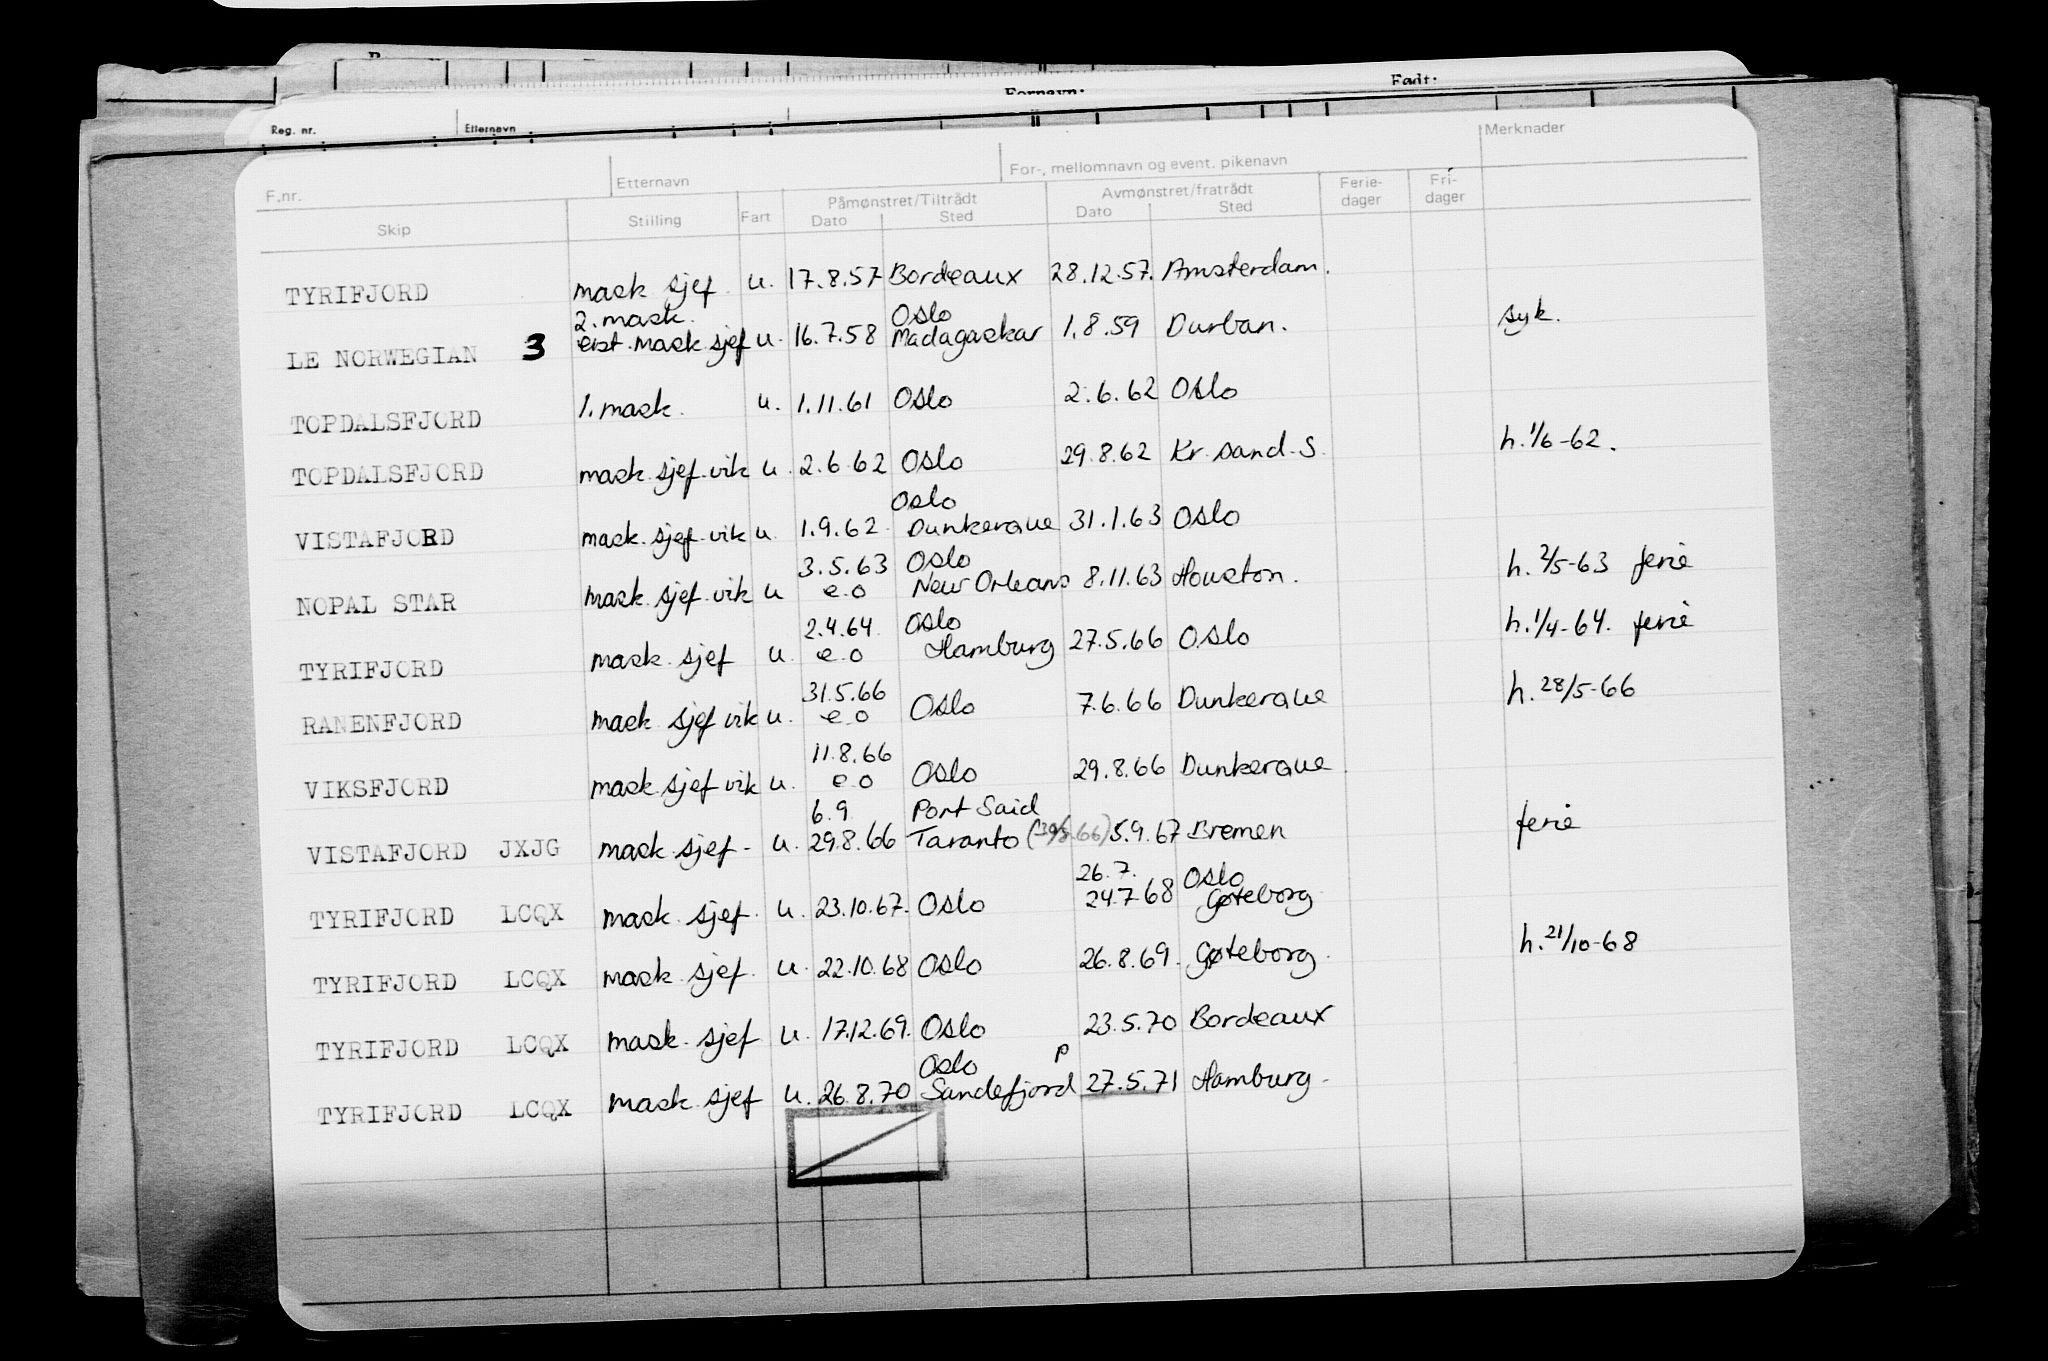 Fornavn: Født:
Reg. nr. Etternavn
Merknader
F.nr. Etternavn For-, mellomnavn og event. pikenavn
Skip Stilling Fart Påmønstret/Tiltrådt Avmønstret/fratrådt Ferie- Fri-
Dato Sted Dato Sted dager dager
TYRIFJORD mask sjef u. 17.8.57 Bordeaux 28.12.57. Amsterdam.
2. mask. Oslo
LE NORWEGIAN 3 mask sjef u. 16.7.58 Madagaskar 1.8.59 Durban. syk.
TOPDALSFJORD 1. mask. u. 1.11.61 Oslo 2.6.62 Oslo
TOPDALSFJORD mask. sjef. vik u. 2.6.62 Oslo 29.8.62 Kr. sand. S. h. 1/6-62.
Oslo
VISTAFJORD mask. sjef. vik u. 1.9.62. Dunkerque 31.1.63 Oslo
3.5.63 Oslo
NOPAL STAR mask. sjef. vik u e.o New Orleans 8.11.63 Houston. h. 2/5-63 ferie
2.4.64. Oslo
TYRIFJORD mask. sjef u. e.o Hamburg 27.5.66 Oslo h. 1/4-64. ferie
31.5.66
RANENFJORD mask. sjef vik u. e.o Oslo 7.6.66 Dunkerque h. 28/5-66
11.8.66
VIKSFJORD mask. sjef vik u. e.o Oslo 29.8.66 Dunkerque
6.9. Port Said
VISTAFJORD JXJG mask. sjef - u. 29.8.66 Taranto 5.9.67 Bremen ferie
26.7. Oslo
TYRIFJORD LCQX mask. sjef. u. 23.10.67. Oslo 24.7.68 Gøteborg
TYRIFJORD LCQX mask. sjef. u. 22.10.68 Oslo 26.8.69. Gøteborg. h. 21/10-68
TYRIFJORD LCQX mask. sjef u. 17.12.69. Oslo 23.5.70 Bordeaux
Oslo P
TYRIFJORD LCQX mask. sjef u. 26.8.70 Sandefjord 27.5.71 Hamburg.